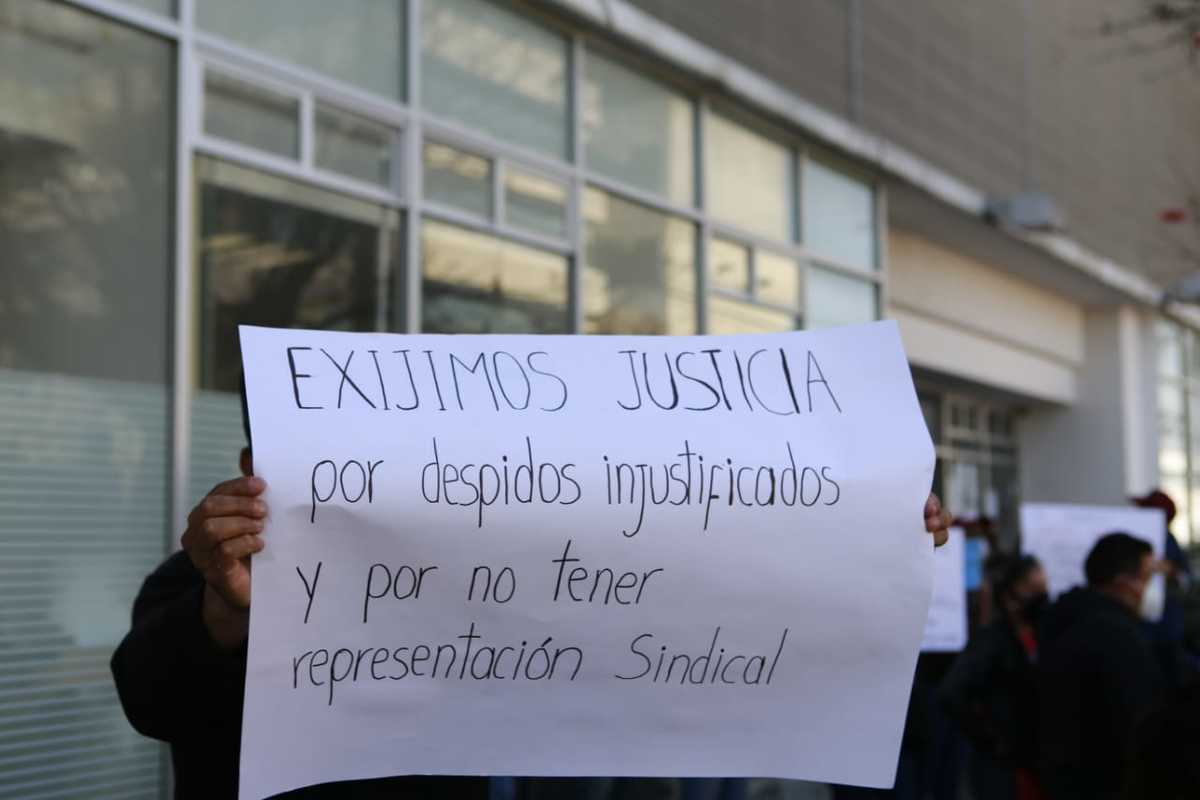 EXIJIMOS JUSTICIA
por despidos injustificados
y por no tener
representación Sindical